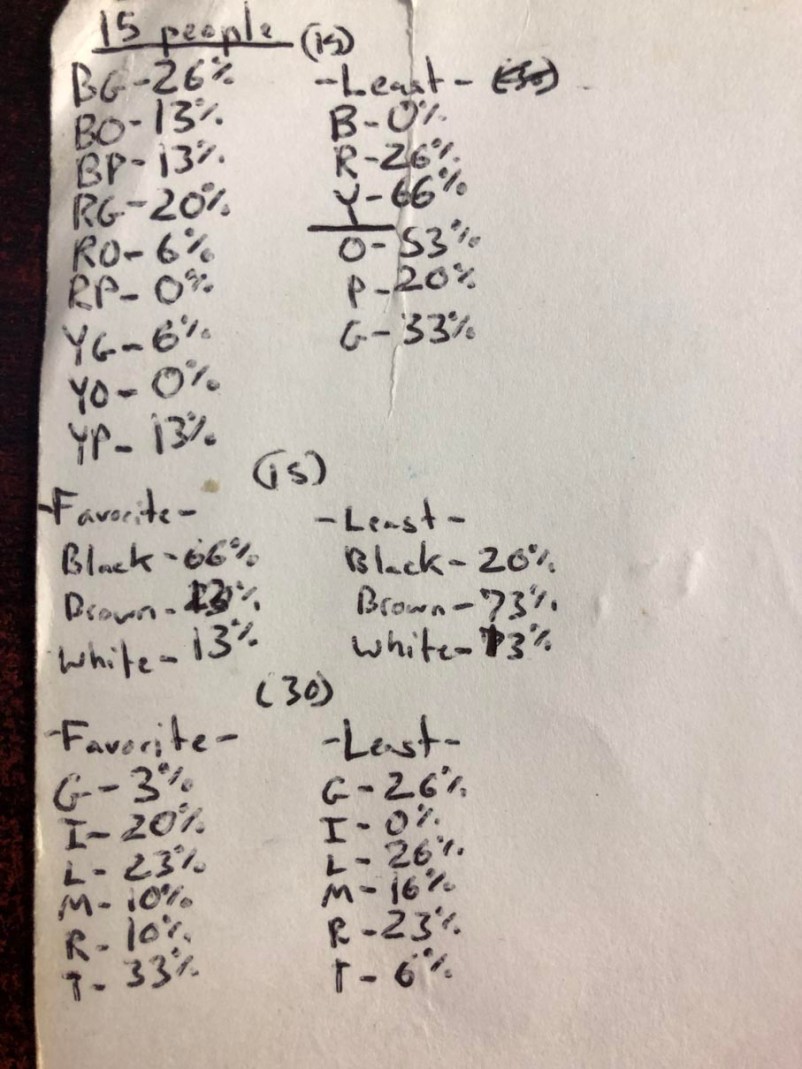 15 people (15)
BG-26%
BO-13%
BP-13%
RG-20%
RO-6%
RP-0%
YG-6%
YO-0%
YP-13%
-Least-
B-0%
R-26%
Y-66%
O-53%
P-20%
G-33%
(15)
-Favorite-
Black-66%
Brown-
White-13%
-Least-
Black-20%
Brown-73%
White-
(30)
-Favorite-
G-3%
I-20%
L-23%
M-10%
R-10%
T-33%
-Least-
G-26%
I-0%
L-26%
M-16%
R-23%
T-6%